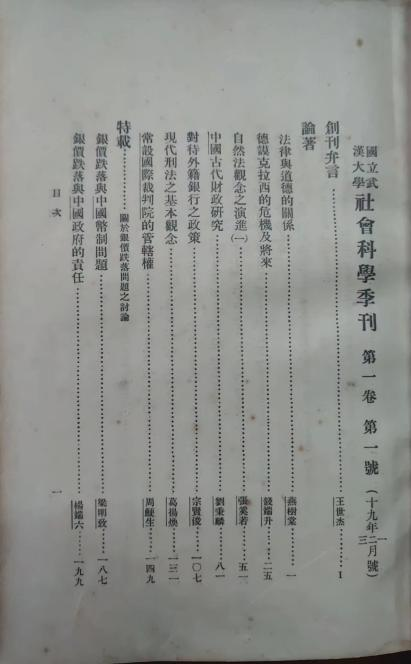 國立武漢大學社會科學季刊 第一卷 第一號 (十九年一二三月號)
創刊弁言……王世杰……I
論著
法律與道德的關係……燕樹棠……一
德謨克拉西的危機及將來……錢端升……二五
自然法觀念之演進(一)……張奚若……五一
中國古代財政研究……劉秉麟……八一
對待外籍銀行之政策……宗賢俊……一〇七
現代刑法之基本觀念……葛揚煥……一三一
常設國際裁判院的管轄權……周鯁生……一四九
特載……關於銀價跌落問題之討論
銀價跌落與中國幣制問題……梁明致……一八七
銀價跌落與中國政府的責任……楊端六……一九九
目次
一